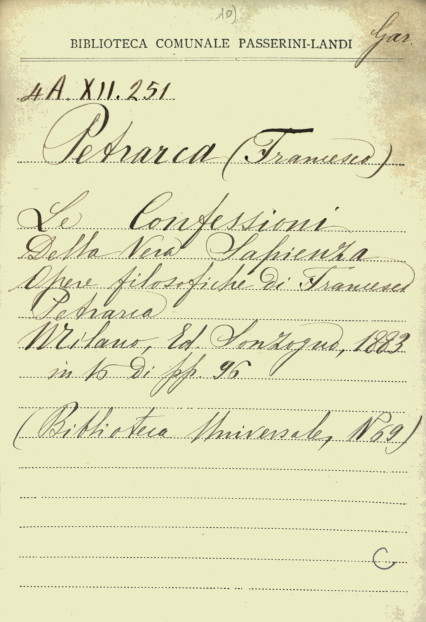 10)
Gar.
BIBLIOTECA COMUNALE PASSERINI-LANDI
4A. XII. 251
Petrarca (Francesco)
Le Confessioni
Della Vera Sapienza
Opere filosofiche di Francesco
Petrarca
Milano, Ed. Sonzogno, 1883
in 16 di pp. 96
(Biblioteca Universale, N 69)
C